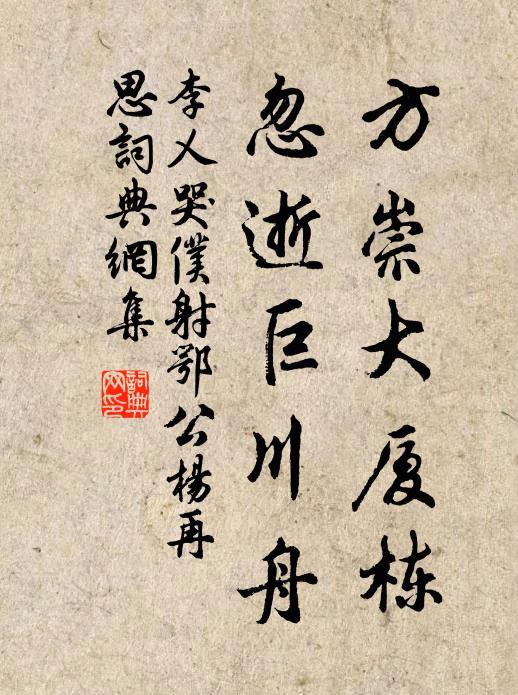 方崇大厦栋
忽逝巨川舟
李乂哭僕射鄂公楊再
思詞典網集
詞典
网印